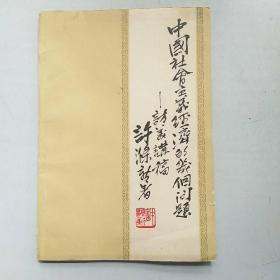 中國社會主義經濟的幾個問題
——訪美講稿
許滌新著